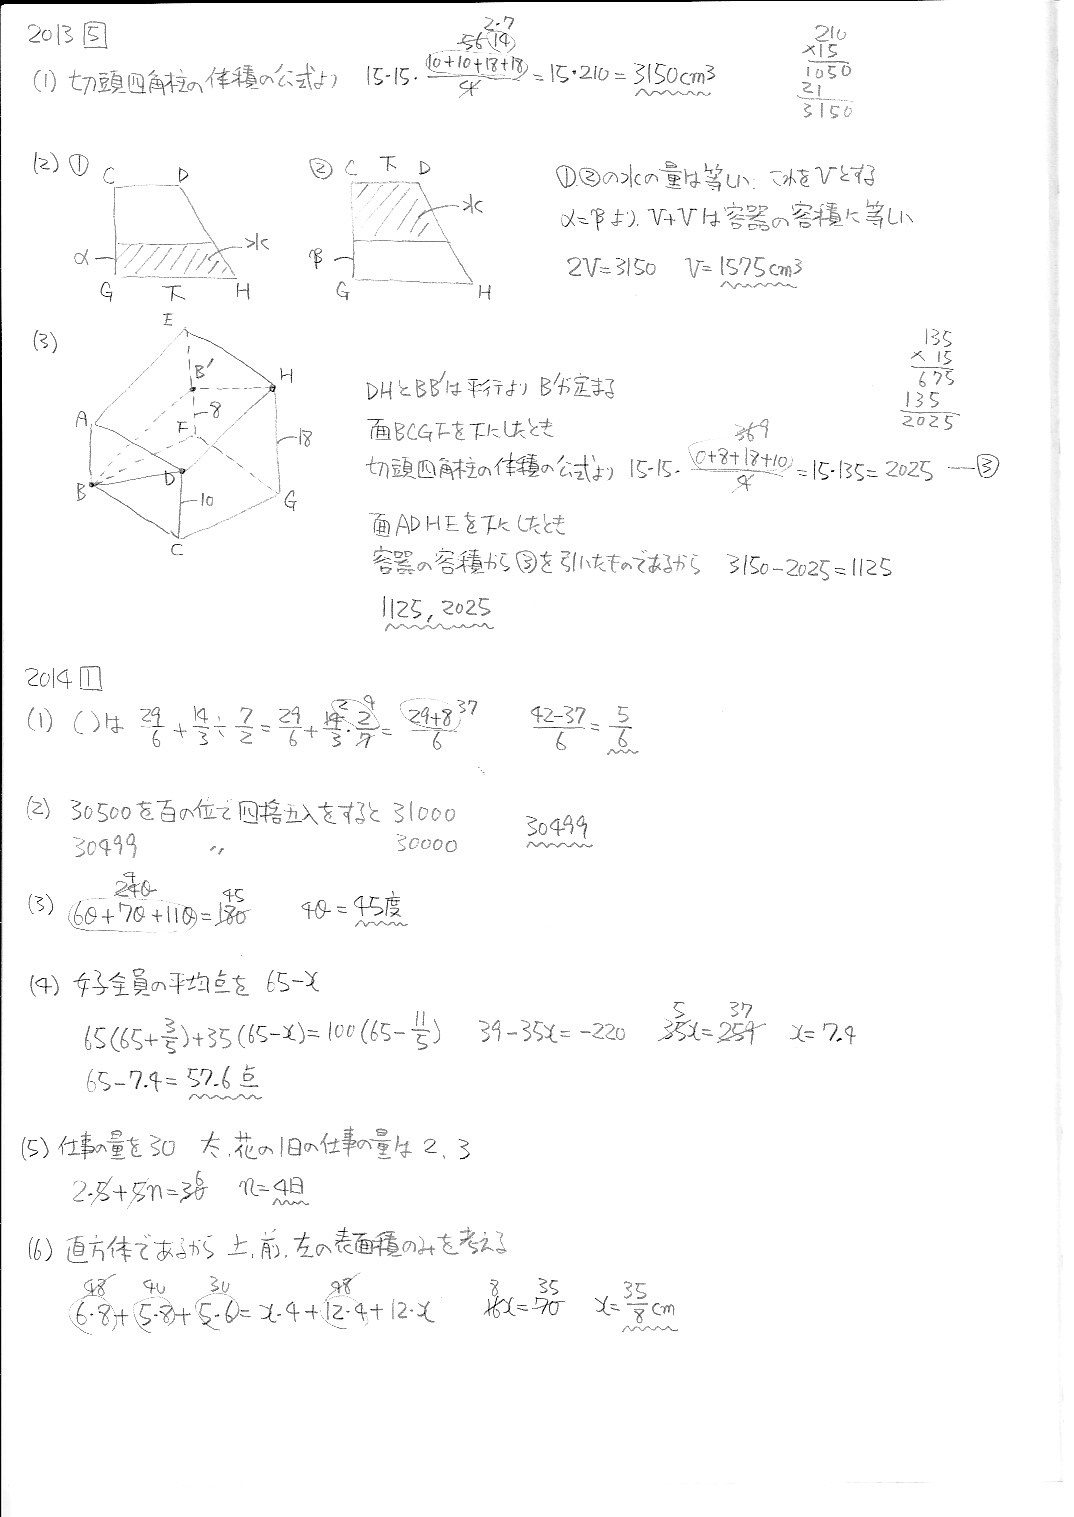 2013 5
(1) 切頭四角柱の体積の公式より 15・15・(10+10+18+18)/4 = 15・210 = 3150cm3
56 14 2・7
210
×15
1050
21
3150
(2) ① C D α 水 G 下 H
② C 下 D 水 β G H
①②の水の量は等しい、これをVとする
α=βより、V+Vは容器の容積に等しい
2V=3150 V=1575cm3
(3)
E B' H A 8 F 18 D B 10 G C
DHとBB'は平行よりB'が定まる
面BCGFを下にしたとき
切頭四角柱の体積の公式より 15・15・(0+8+18+10)/4 = 15・135 = 2025 ―③
36 9
135
×15
675
135
2025
面ADHEを下にしたとき
容器の容積から③を引いたものであるから 3150-2025=1125
1125, 2025
2014 1
(1) ( )は 29/6 + 14/3 ÷ 7/2 = 29/6 + 14/3・2/7 = (29+8)/6 37 (42-37)/6 = 5/6
2 4
(2) 30500を百の位で四捨五入をすると 31000
30499 〃 30000 30499
(3) 6θ+7θ+11θ=180 4θ=45度
24θ 4 45
(4) 女子全員の平均点を 65-x
65(65+3/5)+35(65-x)=100(65-11/5) 39-35x=-220 35x=259 x=7.4
5 37
65-7.4=57.6点
(5) 仕事の量を30 太、花の1日の仕事の量は 2、3
2・5+5n=30 n=4日
6
(6) 直方体であるから 上、前、左の表面積のみを考える
6・8+5・8+5・6=x・4+12・4+12・x 16x=70 x=35/8cm
48 40 30 48 8 35